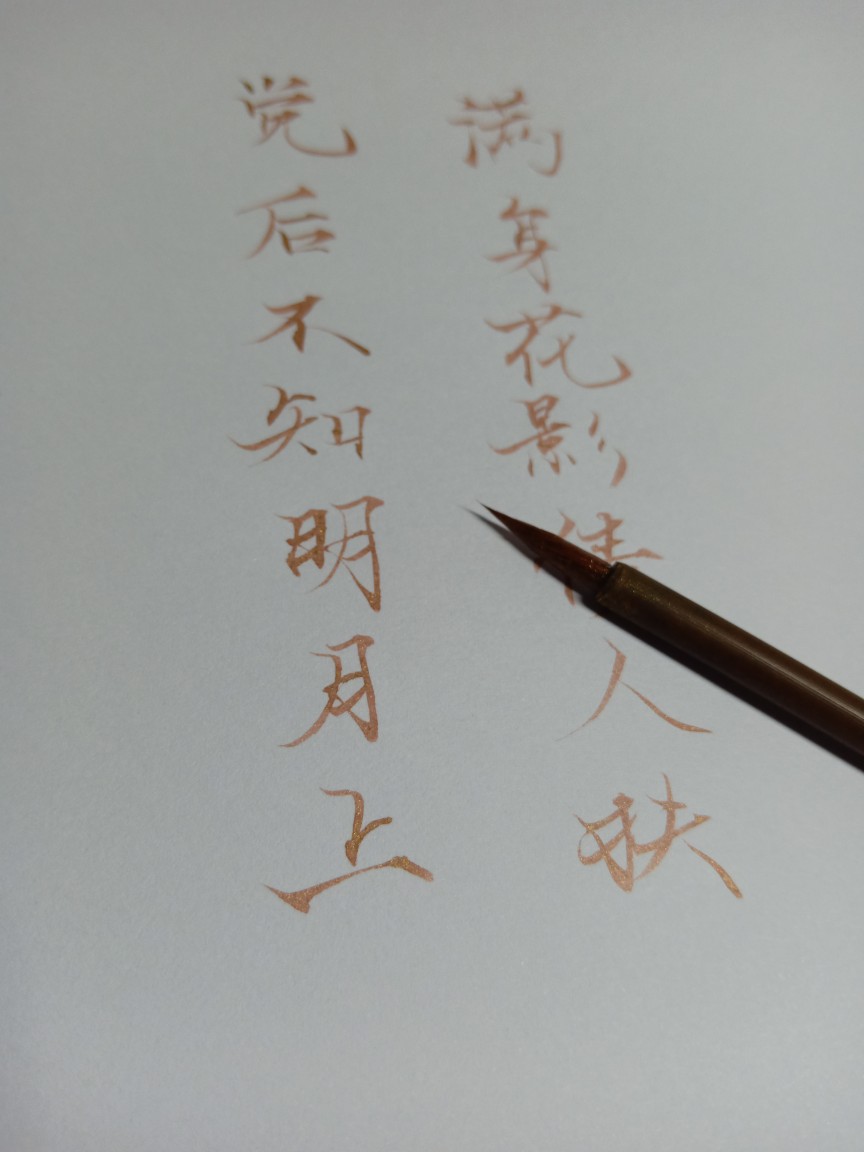 觉后不知明月上
满身花影倩人扶